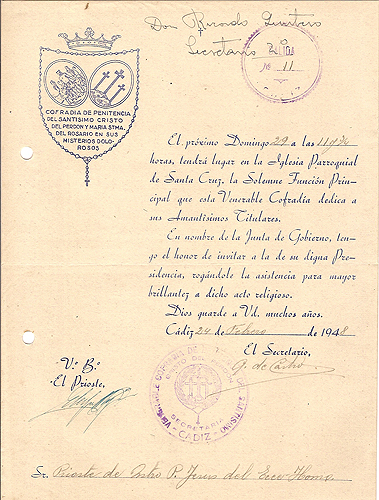 Don Ricardo
Secretario
Nº 11
CADIZ
COFRADIA DE PENITENCIA
DEL SANTISIMO CRISTO
DEL PERDON Y MARIA STMA.
DEL ROSARIO EN SUS
MISTERIOS DOLO-
ROSOS
El próximo Domingo 29 a las 11 y ½
horas, tendrá lugar en la Iglesia Parroquial
de Santa Cruz, la Solemne Función Prin-
cipal que esta Venerable Cofradía dedica a
sus Amantísimos Titulares.
En nombre de la Junta de Gobierno, ten-
go el honor de invitar a la de su digna Pre-
sidencia, rogándole la asistencia para mayor
brillantez a dicho acto religioso.
Dios guarde a Vd. muchos años.
Cádiz 24 de Febrero de 1948
El Secretario,
G. de Castro
V.º B.º
El Prioste,
SECRETARIA
CADIZ
Sr. Prioste de Ntro P. Jesus del Ecce-Homo.